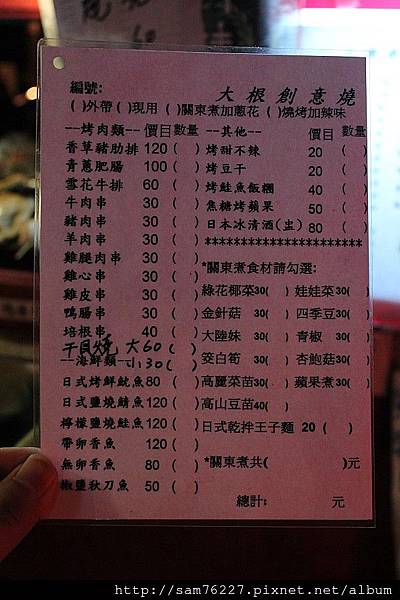 編號:
大根創意燒
( )外帶( )現用 ( )關東煮加蔥花 ( )燒烤加辣味
--烤肉類-- 價目 數量
香草豬肋排 120 ( )
青蔥肥腸 100 ( )
雪花牛排 60 ( )
牛肉串 30 ( )
豬肉串 30 ( )
羊肉串 30 ( )
雞腿肉串 30 ( )
雞心串 30 ( )
雞皮串 30 ( )
鴨腸串 30 ( )
培根串 40 ( )
干貝燒 大60 ( )
小30 ( )
--海鮮類--
日式烤鮮魷魚 80 ( )
日式鹽燒鯖魚 120 ( )
檸檬鹽燒鮭魚 120 ( )
帶卵香魚 120 ( )
無卵香魚 80 ( )
椒鹽秋刀魚 50 ( )
--其他-- 價目 數量
烤甜不辣 20 ( )
烤豆干 20 ( )
烤鮭魚飯糰 40 ( )
焦糖烤蘋果 50 ( )
日本冰清酒(盅) 80 ( )
**********************
*關東煮食材請勾選:
綠花椰菜30( ) 娃娃菜30( )
金針菇 30( ) 四季豆30( )
大陸妹 30( ) 青椒 30( )
筊白筍 30( ) 杏鮑菇30( )
高麗菜苗30( ) 蘋果煮30( )
高山豆苗40( )
日式乾拌王子麵 20 ( )
*關東煮共( )元
總計: 元
http://sam76227.pixnet.net/album